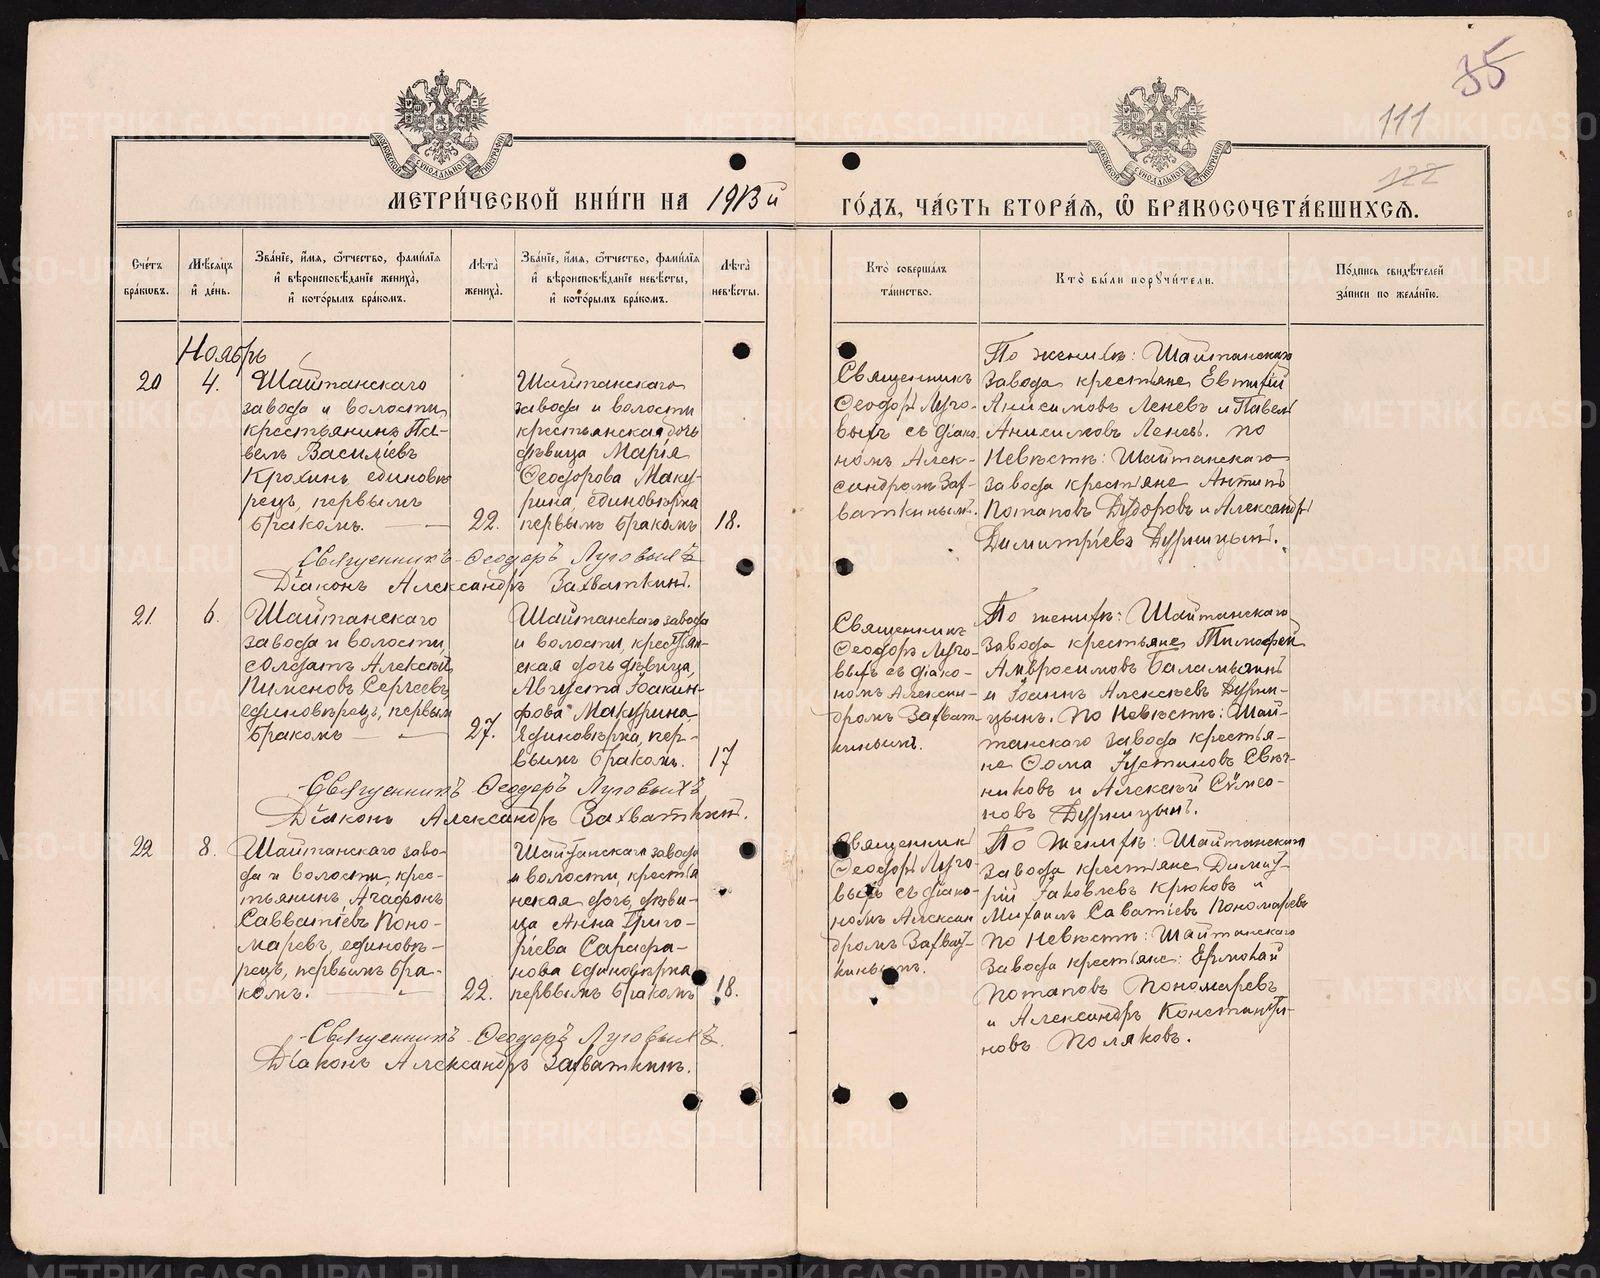 35
111
122
МЕТРИ́ЧЕСКОЙ КНИ́ГИ НА 1913й
ГО́ДЪ, ЧА́СТЬ ВТОРА́Я, Ѽ БРАКОСОЧЕТА́ВШИХСЯ.
Сче́тъ бра́ковъ.
Мѣ́сяцъ и҆ де́нь.
Зва́нїе, и҆́мя, ѻ҆́тчество, фами́лїя
и҆ вѣроисповѣ́данїе жениха̀,
и҆ кото́рымъ бра́комъ.
Лѣ́та жениха̀.
Зва́нїе, и҆́мя, ѻ҆́тчество, фами́лїя
и҆ вѣроисповѣ́данїе невѣ́сты,
и҆ кото́рымъ бра́комъ.
Лѣ́та невѣ́сты.
Кто̀ соверша́лъ
та́инство.
Кто̀ бы́ли порꙋчи́тели.
По́дпись свидѣ́телей
за́писи по жела́нїю.
Ноябрь
20
4.
Шайтанскаго
завода и волости
крестьянинъ Па-
велъ Василіевъ
Крохинъ, единовѣ
рецъ, первымъ
бракомъ.
22.
Шайтанскаго
завода и волости
крестьянская дочь
дѣвица Марія
Ѳеодорова Маку-
рина, единовѣрка
первымъ бракомъ
18.
Священникъ
Ѳеодоръ Луго-
выхъ съ діако-
номъ Алек-
сандромъ Зах-
ваткинымъ.
По женихѣ: Шайтанскаго
завода крестьяне Евтихій
Анисимовъ Леневъ и Павелъ
Анисимовъ Леневъ. По
Невѣстѣ: Шайтанскаго
завода крестьяне Антипъ
Потаповъ Дудоровъ и Александръ
Димитріевъ Дурницынъ.
Священникъ Ѳеодоръ Луговыхъ
Діаконъ Александръ Захваткинъ.
21.
6.
Шайтанскаго
завода и волости,
солдатъ Алексѣй
Пименовъ Сергеевъ
единовѣрецъ, первым
бракомъ
27.
Шайтанскаго завода
и волости, крестьян-
ская дочь дѣвица,
Августа Іоакин-
фова Макурина,
единовѣрка, пер-
вымъ бракомъ.
17
Священникъ
Ѳеодоръ Луго-
выхъ съ діако-
номъ Алексан-
дромъ Захват-
кинымъ.
По женихѣ: Шайтанскаго
завода крестьяне Тимофей
Амвросимовъ Баламыкинъ
и Іоаннъ Алексѣевъ Дурни-
цынъ. По Невѣстѣ: Шай-
танскаго завода крестья-
не Ѳома Іустиновъ Свѣч-
никовъ и Алексѣй Сѵмео-
новъ Дурницынъ.
Священникъ Ѳеодоръ Луговыхъ
Діаконъ Александръ Захваткинъ.
22
8.
Шайтанскаго заво-
да и волости, крес-
тьянинъ Агафонъ
Савватіевъ Поно-
маревъ, единовѣ-
рецъ, первымъ бра-
комъ.
22.
Шайтанскаго завода
и волости, крестья
нская дочь, дѣви-
ца Анна Григо-
ріева Сарафа-
нова единовѣрка
первымъ бракомъ
18.
Священникъ
Ѳеодоръ Луго-
выхъ съ діако-
номъ Алексан
дромъ Захват-
кинымъ.
По Женихѣ: Шайтанскаго
завода крестьяне Димит-
рій Іаковлевъ Крюковъ и
Михаилъ Саватіевъ Пономаревъ
По Невѣстѣ: Шайтанскаго
завода крестьяне: Ермолай
Потаповъ Пономаревъ
и Александръ Константи-
новъ Поляковъ.
Священникъ Ѳеодоръ Луговыхъ.
Діаконъ Александръ Захваткинъ.
METRIKI.GASO-URAL.RU